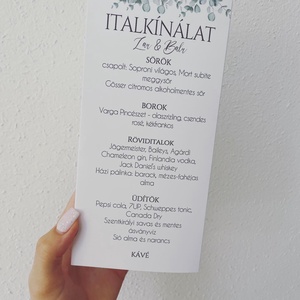 ITALKÍNÁLAT
& Balu
SÖRÖK
csapolt: Soproni világos, Mort subite
meggysör
Gösser citromos alkoholmentes sör
BOROK
Varga Pincészet - olaszrizling, csendes
rosé, kékfrankos
RÖVIDITALOK
Jägermeister, Baileys, Agárdi
Chameleon gin, Finlandia vodka,
Jack Daniel's whiskey
Házi pálinka: barack, mézes-fahéjas
alma
ÜDÍTŐK
Pepsi cola, 7UP, Schweppes tonic,
Canada Dry
Szentkirályi savas és mentes
ásványvíz
Sió alma és narancs
KÁVÉ